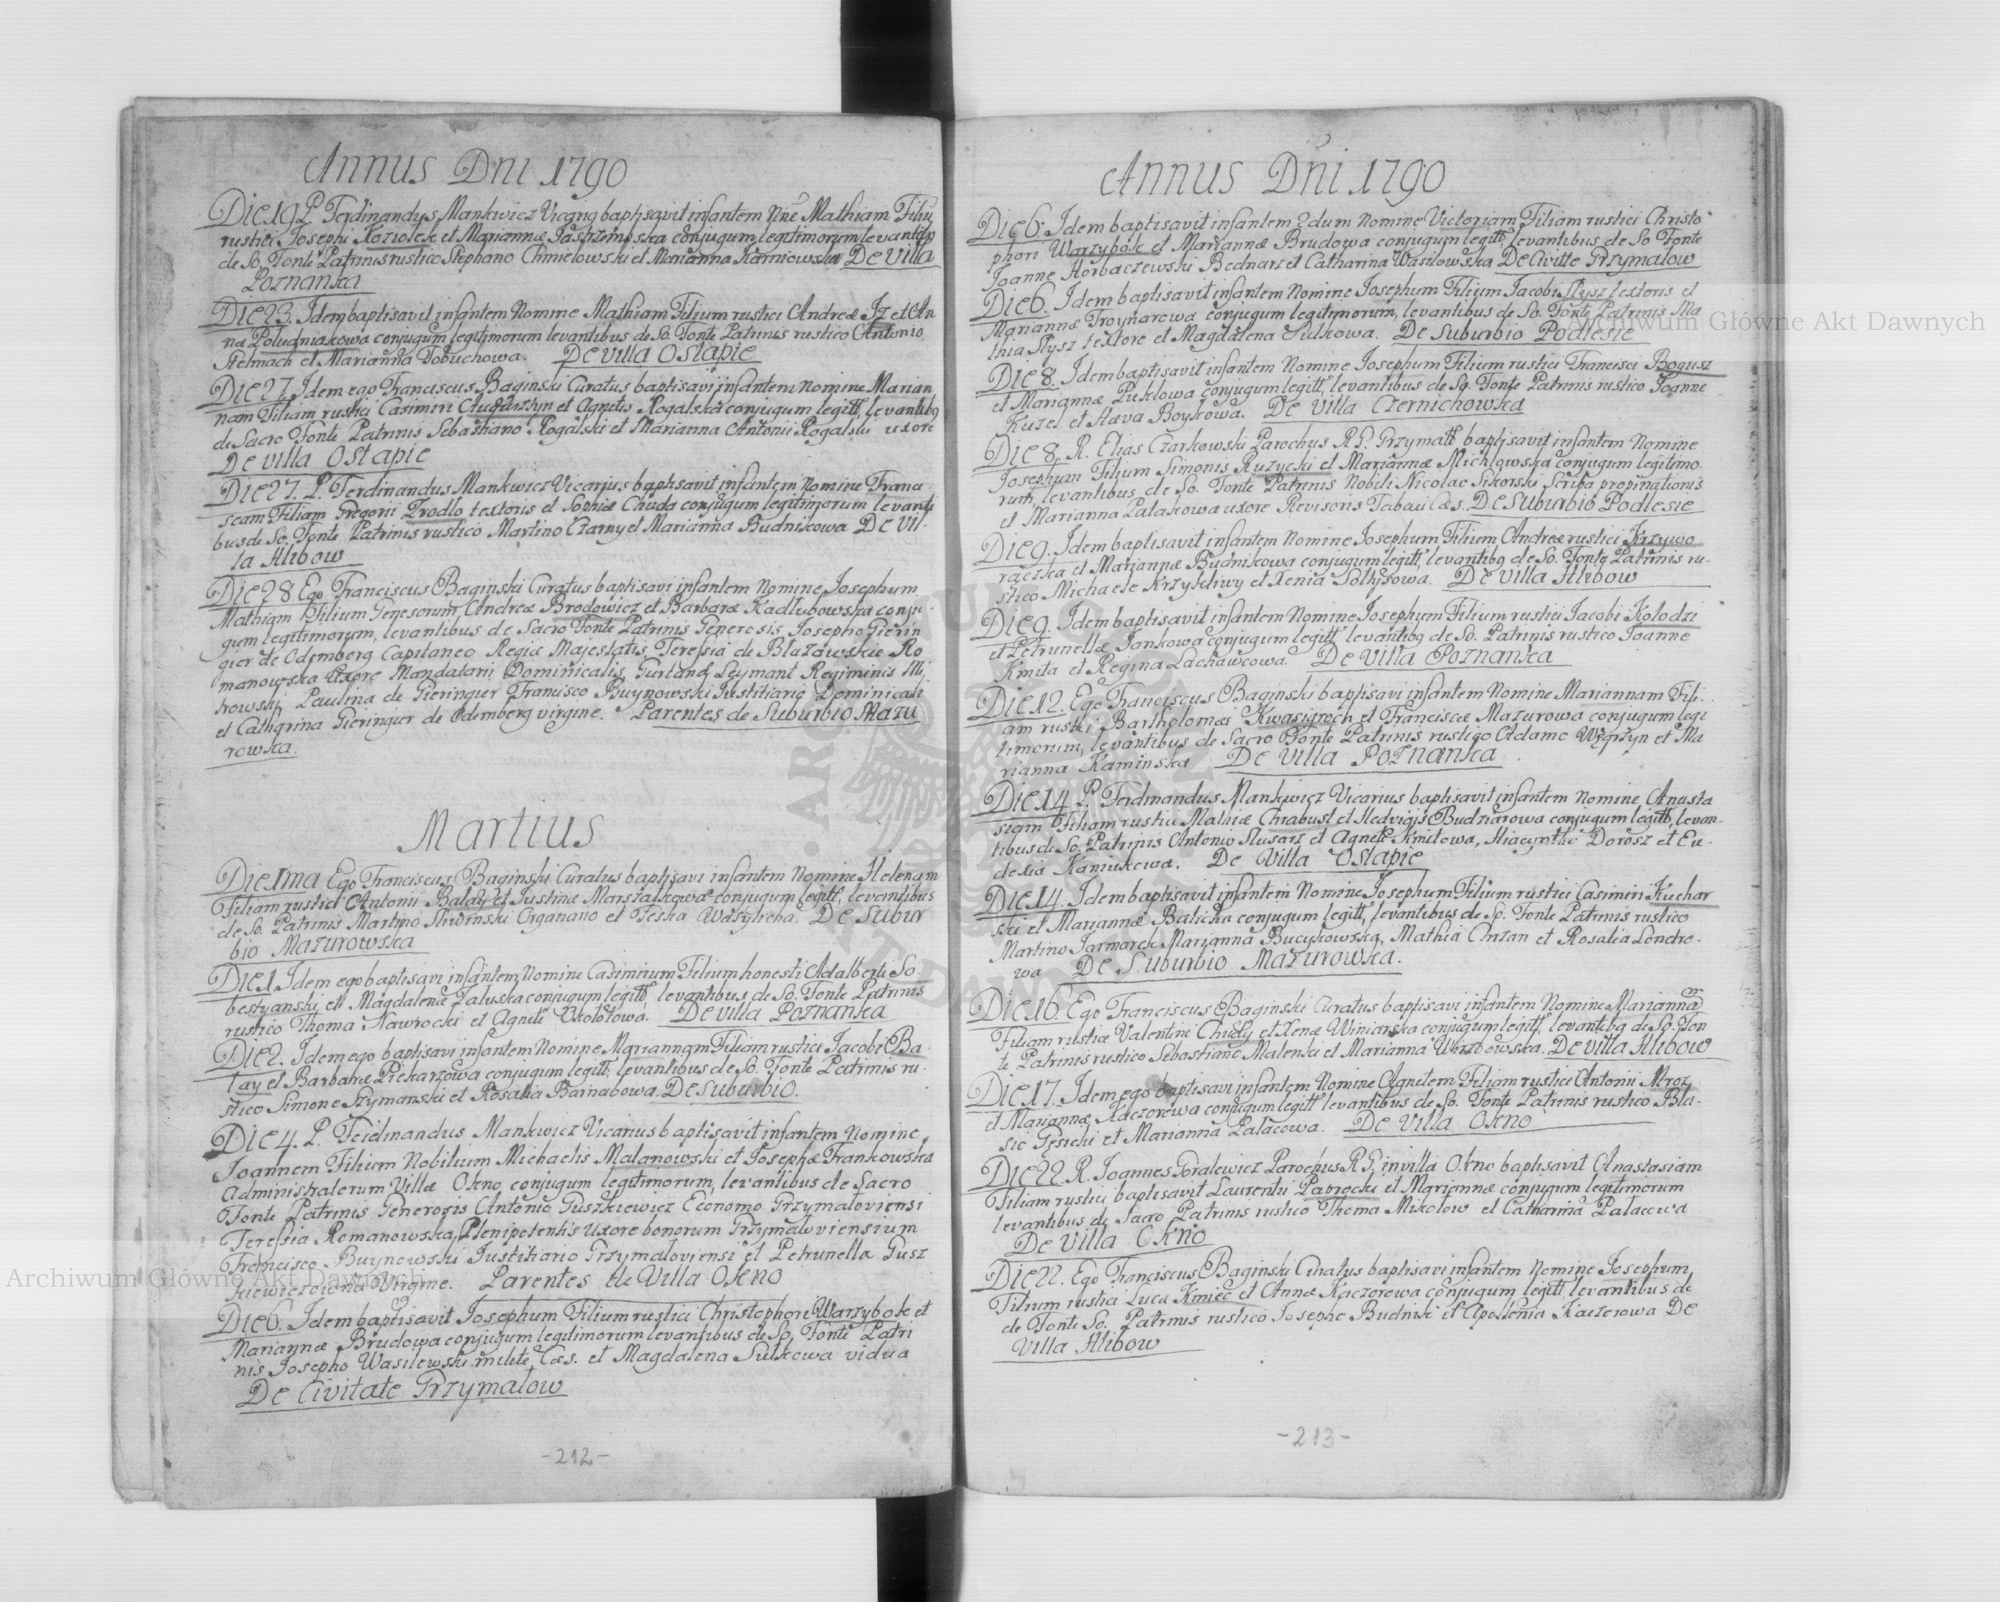 Annus Dni 1790
Die 19 P. Ferdinandus Mankwicz Vicarius baptisavit infantem Nne Mathiam Filiu
rustici Josephi Koziolek et Mariannæ Jastrzembska conjugum legitimorum levantibs
de So. Fonte Patrinis rustico Stephano Chmielowski et Marianna Karniowska De Villa
Poznanka
Die 23. Idem baptisavit infantem Nomine Mathiam Filium rustici Andreæ Iz et An
næ Poludniakowa conjugum legitimorum levantibus de So. Fonte Patrinis rustico Antonio
Stelmach et Marianna Tobuchowa. De villa Ostapie
Die 27. Idem ego Franciscus Baginski Curatus baptisavi infantem Nomine Marian
nam Filiam rustici Casimiri Augustyn et Agnetis Rogalska conjugum legitt, levantibg
de Sacro Fonte Patrinis Sebastiano Rogalski et Marianna Antonii Rogalski uxore
De villa Ostapie
Die 27. P. Ferdinandus Mankwicz Vicarius baptisavit infantem Nomine Franci
scam Filiam Gregorii Zrodlo textoris et Sophiæ Chuda conjugum legitimorum levanti
bus de So. Fonte Patrinis rustico Martino Czarny et Marianna Budnikowa De Vil-
la Hlibow
Die 28 Ego Franciscus Baginski Curatus baptisavi infantem Nomine Josephum
Mathiam Filium Generosorum Andreæ Brodowicz et Barbaræ Kadlubowska conju-
gum legitimorum, levantibus de Sacro Fonte Patrinis Generosis Josepho Gierin
gier de Odemberg Capitaneo Regiæ Majestatis, Teresia de Blazowskie Ro
manowska Uxore Mandatarii Dominicalis, Leymant Regiminis Mi,
Paulina de Gieringier Francisco Buynowski Justitiario Dominicali
et Catharina Gieringier de Odemberg virgine. Parentes de Suburbio Mazu
rowska.
Martius
Die 1ma Ego Franciscus Baginski Curatus baptisavi infantem Nomine Helenam
Filiam rustici Antonii Balay et Justinæ Marszalkowa conjugum legitt, levantibus
de So. Patrinis Martino Organario et Teska Wasylicha. De Subur
bio Mazurowska
Die 1. Idem ego baptisavi infantem Nomine Casimirum Filium honesti Adalberti So
bestyanski et Magdalenæ Zaluska conjugum legitt, levantibus de So. Fonte Patrinis
rustico Thoma Nawrocki et Agnete De villa Poznanka
Die 2. Idem ego baptisavi infantem Nomine Mariannam Filiam rustici Jacobi Ba-
lay et Barbaræ Piekarzowa conjugum legitt, levantibus de So. Fonte Patrinis ru-
stico Simone Szymanski et Rosalia Barnabowa. De Suburbio.
Die 4. P. Ferdinandus Mankwicz Vicarius baptisavit infantem Nomine
Joannem Filium Nobilium Michaelis Malanowski et Josephæ Frankowska
Administratorum Villæ Okno, conjugum legitimorum, levantibus de Sacro
Fonte Patrinis Generosis Antonio Guszkiewicz Economo Grzymaloviensi
Teresia Romanowska, Plenipotentis Uxore bonorum Grzymaloviensium
Francisco Buynowski Justitiario Grzymaloviensi et Petrunella Gusz
kiewiczowna Virgine. Parentes de Villa Okno
Die 6. Idem baptisavit Josephum Filium rustici Christophori Warzybok et
Mariannæ Brudowa conjugum legitimorum levantibus de So. Fonte Patri
nis Josepho Wasilewski milite Cæs. et Magdalena Sulkowa vidua
De Civitate Grzymalow
-212-
Annus Dni 1790
Die 6. Idem baptisavit infantem 2dum Nomine Victoriam Filiam rustici Christo
phori Warzybok et Mariannæ Brudowa conjugum legitt, levantibus de So Fonte
Joanne Horbaczewski Bednarz et Catharina Wasilowska De Civitte Grzymalow
Die 6. Idem baptisavit infantem Nomine Josephum Filium Jacobi Slysz textoris et
Mariannæ Troynarowa conjugum legitimorum, levantibus de So. Fonte Patrinis Ma
thia Slysz textore et Magdalena Sulkowa. De Suburbio Podlesie
Die 8. Idem baptisavit infantem Nomine Josephum Filium rustici Francisci Bogusz
et Mariannæ Puklowa conjugum legitt, levantibus de So. Fonte Patrinis rustico Joanne
Kuzel et Hæva Boykowa. De Villa Czernichowska
Die 8. R. Elias Czarkowski Parochus R. G. Grzymall baptisavit infantem Nomine
Josephum Filium Simonis Ruzycki et Mariannæ Michlowska conjugum legitimo
rum, levantibus de So. Fonte Patrinis Nobili Nicolao Sikorski Scriba propinationis
et Marianna Palakowa uxore Revisoris Tabaci Cæs. De Suburbio Podlesie
Die 9. Idem baptisavit infantem Nomine Josephum Filium Andreæ rustici Krzywo
raczka et Mariannæ Budnikowa conjugum legitt, levantibg de So. Fonte Patrinis ru-
stico Michaele Krzykliwy et Xenia Soltysowa. De Villa Hlibow
Die 9. Idem baptisavit infantem Nomine Josephum Filium rustici Jacobi Kolodzi
et Petrunellæ Jankowa conjugum legitt levantibg de So. Patrinis rustico Joanne
Kmita et Regina Lachawcowa. De Villa Poznanka
Die 12. Ego Franciscus Baginski baptisavi infantem Nomine Mariannam Fili-
am rustici Bartholomæi Kwasigroch et Franciscæ Mazurowa conjugum legi
timorum, levantibus de Sacro Fonte Patrinis rustico Adamo Wyrzyn et Ma
rianna Kaminska De Villa Poznanka
Die 14 P. Ferdinandus Mankwicz Vicarius baptisavit infantem Nomine Anasta
siam Filiam rustici Mathiæ Chrabust et Hedvigis Budziarowa conjugum legitt, levan-
tibus de So. Patrinis Antonio Slusarz et Agnete Kmitowa, Hiacyntho Dorosz et Eu-
doxia Kaniukowa. De Villa Ostapie
Die 14. Idem baptisavit infantem Nomine Josephum Filium rustici Casimiri Kuchar
ski et Mariannæ Balicka conjugum legitt, levantibus de So. Fonte Patrinis rustico
Martino Jarmarek Marianna Bucykowska, Mathia Chrzan et Rosalia Londro-
wa De Suburbio Mazurowska.
Die 16. Ego Franciscus Baginski Curatus baptisavi infantem Nomine Marianna
Filiam rustici Valentini Chudy et Xenæ Winiarska conjugum legitt, levantibg de So. Fon
te Patrinis rustico Sebastiano Malenki et Marianna Wrzbowska. De villa Hlibow
Die 17. Idem ego baptisavi infantem Nomine Agnetem Filiam rustici Antonii Mroz
et Mariannæ Kaczorowa conjugum legitt levantibus de So. Fonte Patrinis rustico Bla-
sio Gesicki et Marianna Palacowa. De Villa Okno
Die 22. R. Joannes Goralewicz Parochus R. G. in villa Okno baptisavit Anastasiam
Filiam rustici baptisavit Laurentii Paprocki et Mariannæ conjugum legitimorum
levantibus de Sacro Patrinis rustico Thoma Mikolow et Catharina Palacowa
De Villa Okno
Die 22. Ego Franciscus Baginski Curatus baptisavi infantem Nomine Josephum,
Filium rustici Luca Kmiec et Annæ Kaczorewa conjugum legitt, levantibus de
de Fonte So. Patrinis rustico Josepho Budnik et Apollonia Kaczorowa De
Villa Hlibow
-213-
Archiwum Główne Akt Dawnych
Archiwum Główne Akt Dawnych
ARCHIWUM GŁÓWNE AKT DAWNYCH